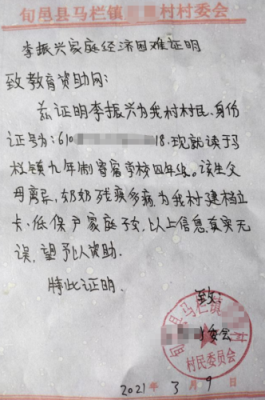 旬邑县马栏镇 村村委会
李振兴家庭经济困难证明
致教育资助网：
兹证明李振兴为我村村民，身份
证号为：610 18.现就读于马
栏镇九年制寄宿学校四年级。该生父
母离异，奶奶残疾多病为我村建档立
卡、低保户家庭子女，以上信息真实无
误，望予以资助。
特此证明。
致
村委会
旬邑县马栏镇
村民委员会
2021年3月9日